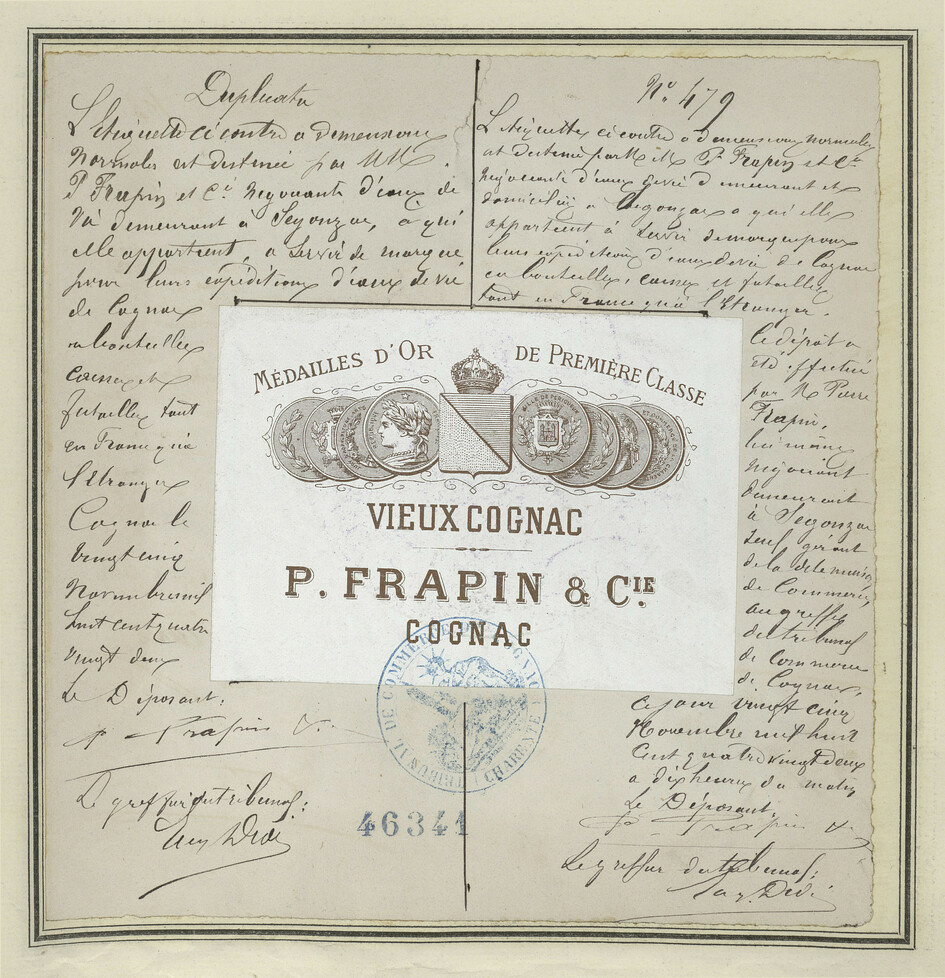 Duplicata
L'étiquette ci contre a dimensions
normales est destinée par MM.
P Frapin et Cie Negociants d'eaux de
vie demeurant a Segonzac, à qui
elle appartient, a servir de marque
pour leurs expéditions d'eaux de vie
de Cognac
en bouteilles
caisses et
futailles tant
en France qu'à
l'étranger
Cognac le
vingt cinq
Novembre mil
huit cent quatre
vingt deux
Le Déposant:
p. Frapin &.
Le greffier du tribunal:
No 479
L'étiquette ci contre a dimensions normales
est destinée par MM P. Frapin et Cie
Negociants d'eaux de vie demeurant et
domiciliés a Segonzac a qui elle
appartient à servir de marque pour
leurs expéditions d'eaux de vie de Cognac
en bouteilles, caisses et futailles
tant en France qu'à l'étranger.
Le dépôt a
été effectué
par M Pierre
Frapin,
lui même
negociant
demeurant
à Segonzac
seul gérant
de la dite maison
de Commerce,
au greffe
du tribunal
de commerce
de Cognac,
ce jour vingt cinq
Novembre mil huit
cent quatre vingt deux
a dix heures du matin
Le Déposant.
p. Frapin &
Le greffier du tribunal:
MÉDAILLES D'OR DE PREMIÈRE CLASSE
VIEUX COGNAC
P. FRAPIN & CIE.
COGNAC
TRIBUNAL DE COMMERCE DE COGNAC
CHARENTE
46341